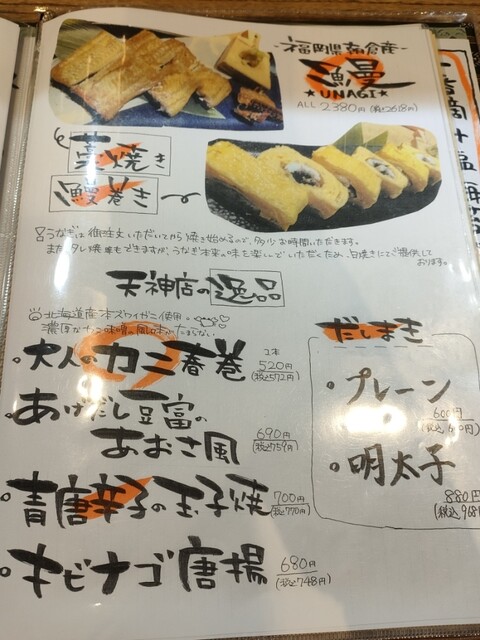 福岡県朝倉産
鰻
★UNAGI★
ALL 2380円 (税込2618円)
藁焼き
鰻巻き
うなぎは御注文いただいてから焼き始めるので、多少お時間いただきます。
また、タレ焼きもできますが、うなぎ本来の味を楽しんでいただくため、白焼きにてご提供して
おります。
天神店の逸品
北海道産本ズワイガニ使用
濃厚なカニ味噌の風味がたまらない
・大人のカニ春巻 1本 520円 (税込572円)
・あげだし豆富の
あおさ風 690円 (税込759円)
・青唐辛子の玉子焼 700円 (税込770円)
・キビナゴ唐揚 680円 (税込748円)
だしまき
・プレーン
600円
(税込660円)
・明太子
880円
(税込968円